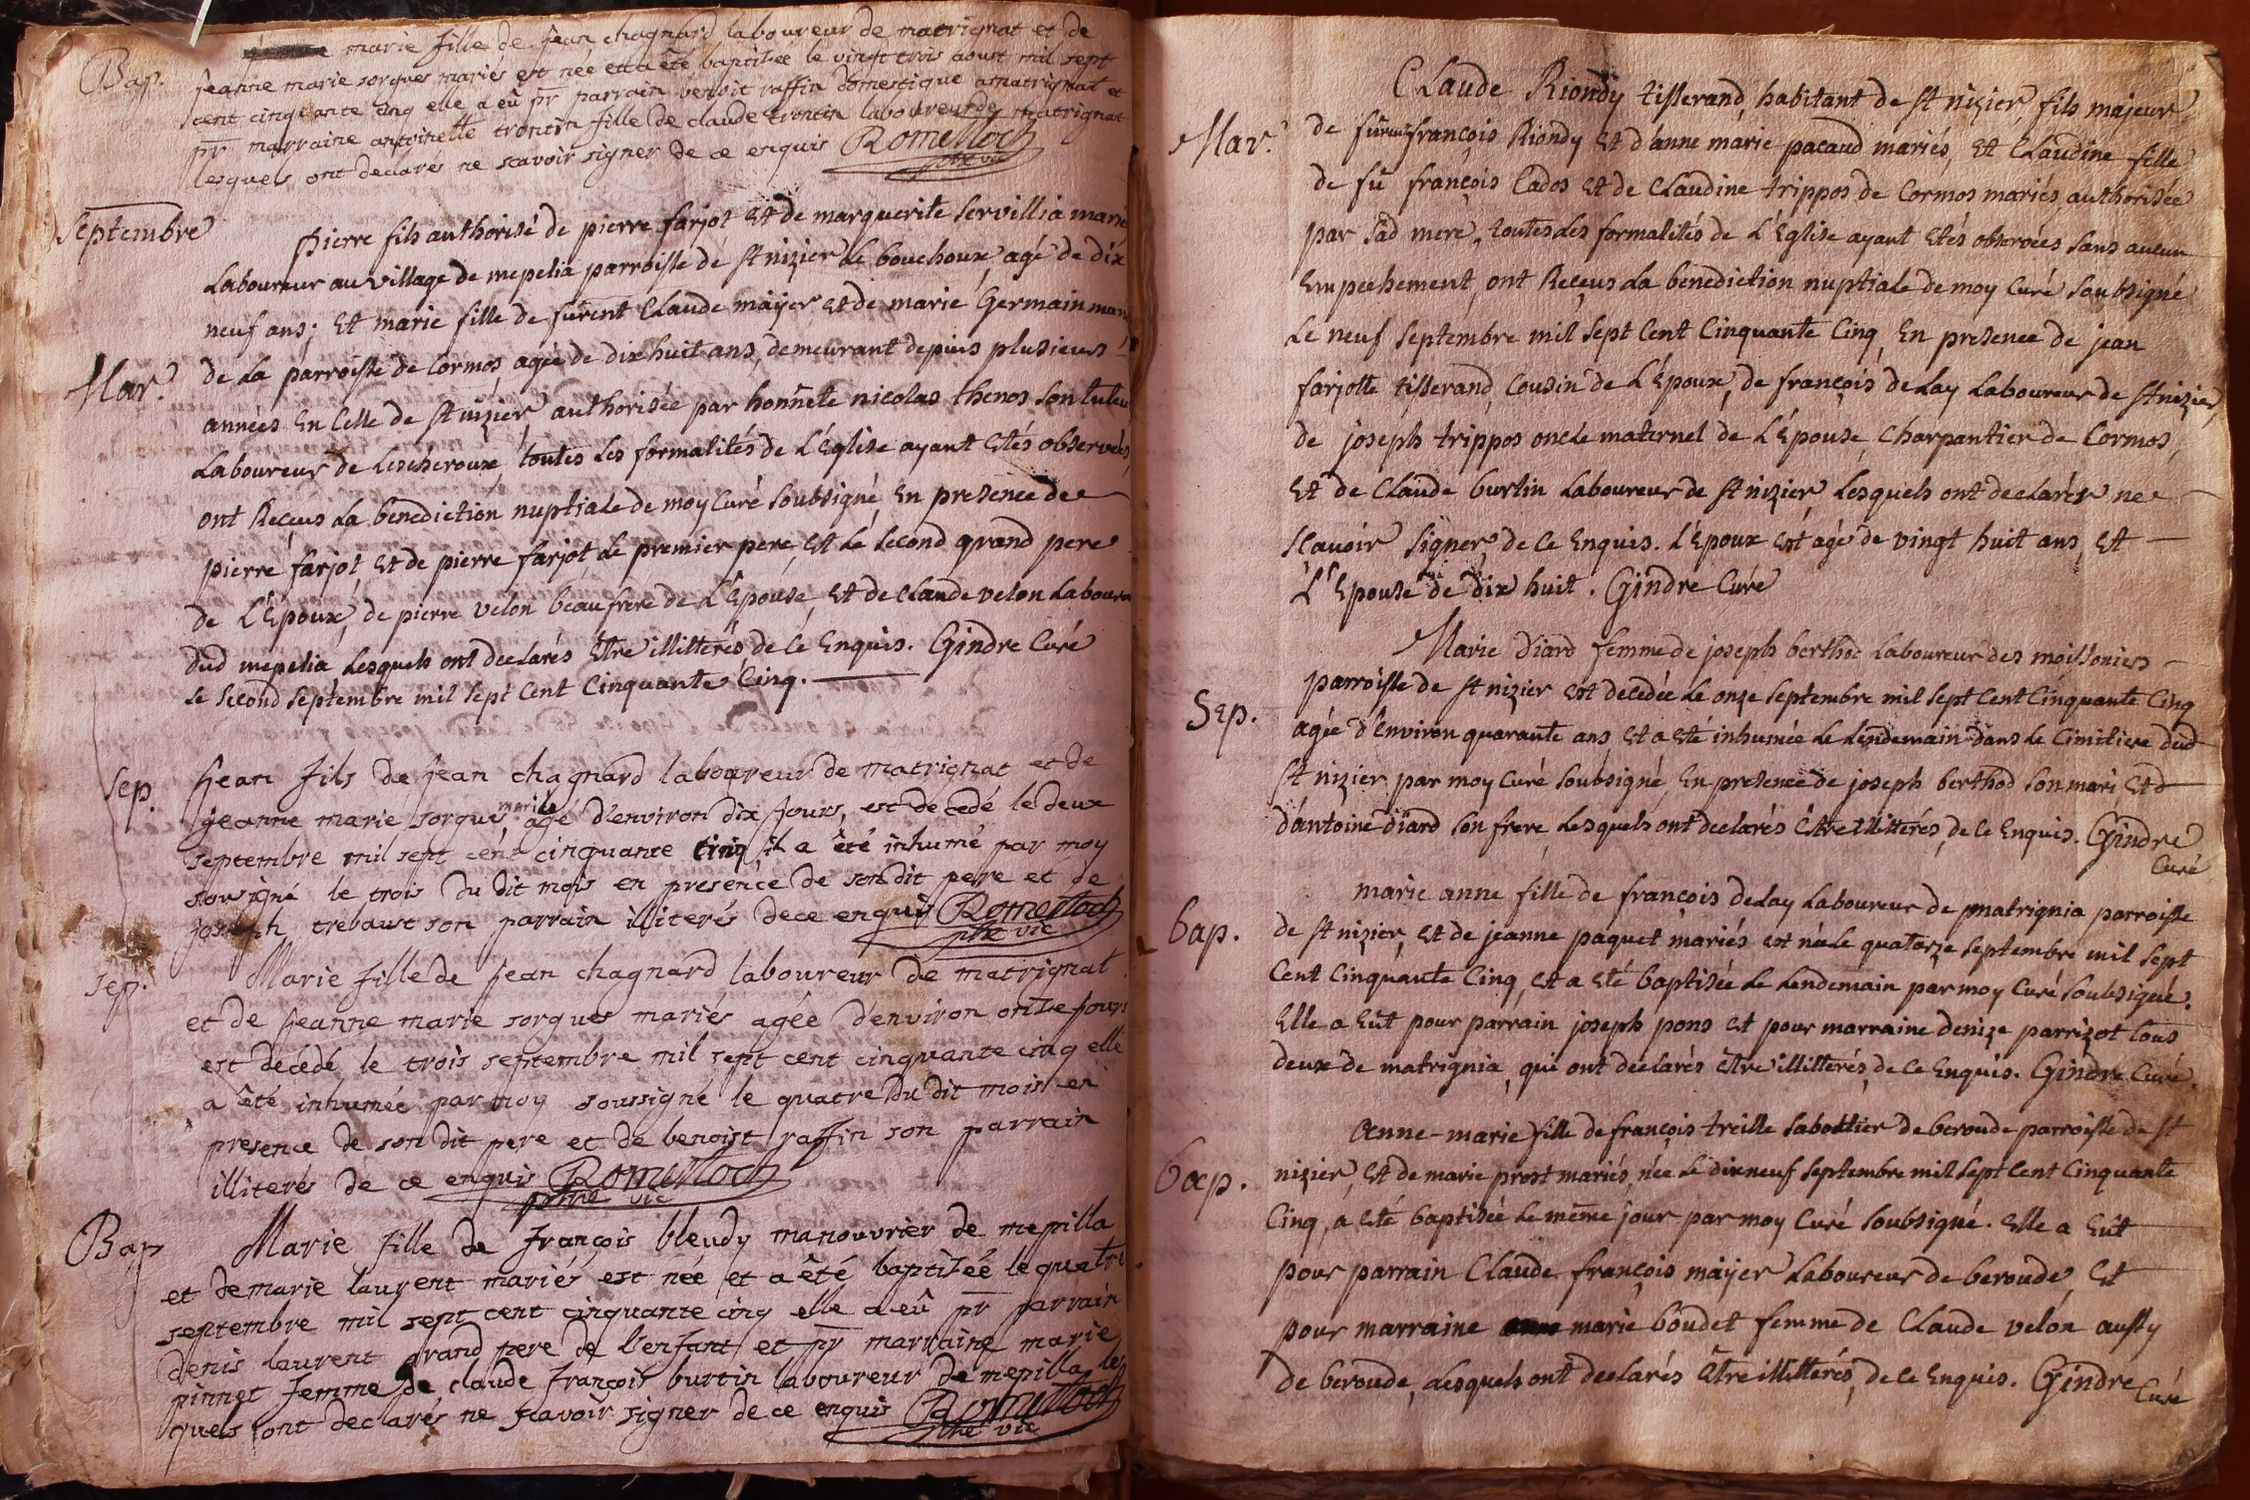 Bap.
marie fille de jean chagnard laboureur de matrignat et de
jeanne marie sorgues mariés est née et a êté baptisée le vingt trois aoust mil sept
cent cinquante cinq elle a eû pr parrain benoit raffin domestique a matrignat et
pr marraine antoinette trontin fille de claude trontin laboureur de matrignat
lesquels ont declarés ne scavoir signer de ce enquis Romelloch
ptre vic
Septembre
Pierre fils authorisé de pierre farjot et de marguerite servillia mariés
Laboureur au village de mepelia parroisse de st nizier le bouchoux, agé de dix
neuf ans; et marie fille de fürent Claude mäyer et de marie Germain mariés
Mar.
de La parroisse de Cormos agée de dix huit ans, demeurant depuis plusieurs
années En Celle de st nizier, authorisée par honnête nicolas thenos Son tuteur
Laboureur de Lescheroux, toutes Les formalités de L'Église ayant Etés observées,
ont Reçeus La benediction nuptiale de moy Curé Soubsigné, En presence de
pierre farjot, et de pierre farjot Le premier pere, Et Le Second grand pere
de L'Époux, de pierre velon beaufrere de L'Épouse, Et de Claude velon Laboureur
dud mepelia Lesquels ont declarés Etre illitterés, de Cé Enquis. Gindre Curé
Le Second Septembre mil Sept Cent Cinquante Cinq.
Sep.
Jean fils de jean chagnard laboureur de matrignat et de
jeanne marie sorgues, mariés agé d'environ dix jours, est decedé le deux
septembre mil sept cent cinquante cinq, il a êté inhumé par moy
sousigné le trois du dit mois en presence de son dit pere et de
joseph trebaust son parrain illiterés de ce enquis Romelloch
ptre vic
Sep.
Marie fille de jean chagnard laboureur de matrignat
et de jeanne marie sorgues mariés agée d'environ onze jours
est decédé le trois septembre mil sept cent cinquante cinq elle
a êté inhumée par moy soussigné le quatre du dit mois en
presence de son dit pere et de benoist raffin son parrain
illiterés de ce enquis Romelloch
ptre vic
Bap
Marie fille de françois bleudy manouvrier de mepilla
et de marie laurent mariés est née et a êté baptisée le quatre
septembre mil sept cent cinquante cinq elle a eû pr parrain
denis laurent grand pere de l'enfant et pr marraine marie
pinnet femme de claude françois burtin laboureur de mepilla les
quels ont declarés ne scavoir signer de ce enquis Romelloch
ptre vic
Claude Riondy tisserand, habitant de st nizier, fils majeur
Mar.
de fürent françois Riondy Et d'anne marie pacaud mariés, Et Claudine fille
de fü françois Cados Et de Claudine trippos de Cormos mariés, authorisée
par Sad mere, toutes Les formalités de L'Église ayant Etés observées Sans aucun
Empechement, ont Reçeus La benediction nuptiale de moy Curé Soubsigné
Le neuf Septembre mil Sept Cent Cinquante Cinq, En presence de jean
farjotte tisserand, Cousin de L'Époux, de françois deLay Laboureur de st nizier,
de joseph trippos oncle maternel de L'Épouse, Charpantier de Cormos,
Et de Claude burtin Laboureur de st nizier, Lesquels ont declarés ne
Sçavoir Signer, de Ce Enquis. L'Époux est agé de vingt huit ans, Et
L'Epouse de dix huit. Gindre Curé
Marie diard femme de joseph berthod Laboureur des moissoniers
Sep.
parroisse de st nizier est decedée Le onze Septembre mil Sept Cent Cinquante Cinq
agée d'Environ quarante ans, Et a Eté inhumée Le Lendemain dans Le Cimitiere dud
st nizier par moy Curé Soubsigné, En presence de joseph berthod Son mari, Et
d'antoine diard Son frere, Lesquels ont declarés Etre illitterés, de Ce Enquis. Gindre
Curé
bap.
marie anne fille de françois deLay Laboureur de matrignia parroisse
de st nizier, Et de jeanne paquet mariés est née Le quatorze Septembre mil Sept
Cent Cinquante Cinq, Et a Eté baptisée Le Lendemain par moy Curé Soubsigné.
Elle a Eüt pour parrain joseph pons Et pour marraine denize parrizot tous
deux de matrignia, qui ont declarés être illitterés, de Ce Enquis. Gindre Curé.
bap.
Anne-marie fille de françois treille Sabottier de beroude parroisse de st
nizier, Et de marie prost mariés, née Le dixneuf Septembre mil Sept Cent Cinquante
Cinq, a Eté baptisée Le même jour par moy Curé Soubsigné. Elle a Eüt
pour parrain Claude françois mäyer Laboureur de beroude, Et
pour marraine marie boudet femme de Claude velon aussy
de beroude, Lesquels ont declarés Être illitterés, de Ce Enquis. Gindre
Curé